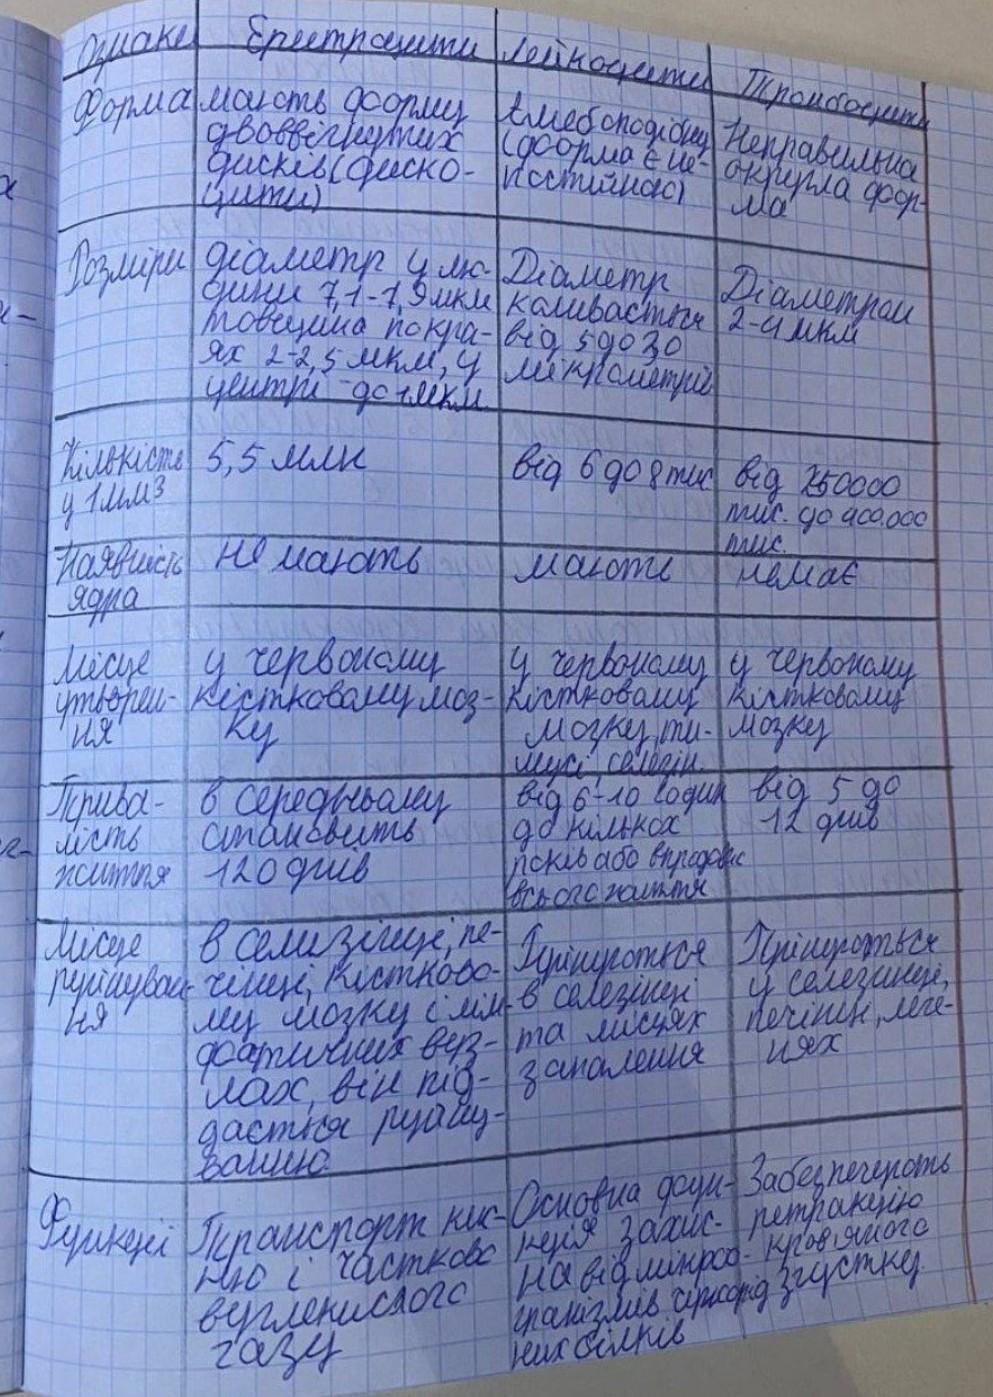 Ознаки
Еритроцити
Лейкоцити
Тромбоцити
Форма
мають форму
двоввігнутих
дисків (диско-
цити)
Амебоподібну
(форма є не-
постійною)
Неправильна
округла фор-
ма
Розміри
діаметр у лю-
дини 7,1-7,9 мкм
товщина по кра-
ях 2-2,5 мкм, у
центрі - до 1 мкм.
Діаметр
коливається
від 5 до 30
мікрометрів
Діаметром
2-4 мкм
Кількість
у 1 мм3
5,5 млн
від 6 до 8 тис
від 250000
тис. до 400.000
тис.
Наявність
ядра
не мають
мають
немає
Місце
утворен-
ня
у червоному
кістковому моз-
ку
у червоному
кістковому
мозку, ти-
мусі, селезін.
у червоному
кістковому
мозку
Трива-
лість
життя
в середньому
становить
120 днів
від 6-10 годин
до кількох
років або впродовж
всього життя
від 5 до
12 днів
Місце
руйнуван-
ня
в селизінці, пе-
чінці, кістково-
му мозку і лім-
фатичних вуз-
лах, він під-
дається руйну-
ванню.
Руйнуються
в селезінці
та місцях
запалення
Руйнуються
у селезінці,
печінці, леге-
нях
Функції
Транспорт кис-
ню і частково
вуглекислого
газу
Основна функ-
ція захис-
на від мікроо-
рганізмів чужорід
них білків
Забезпечують
ретракцію
кров'яного
згустку.